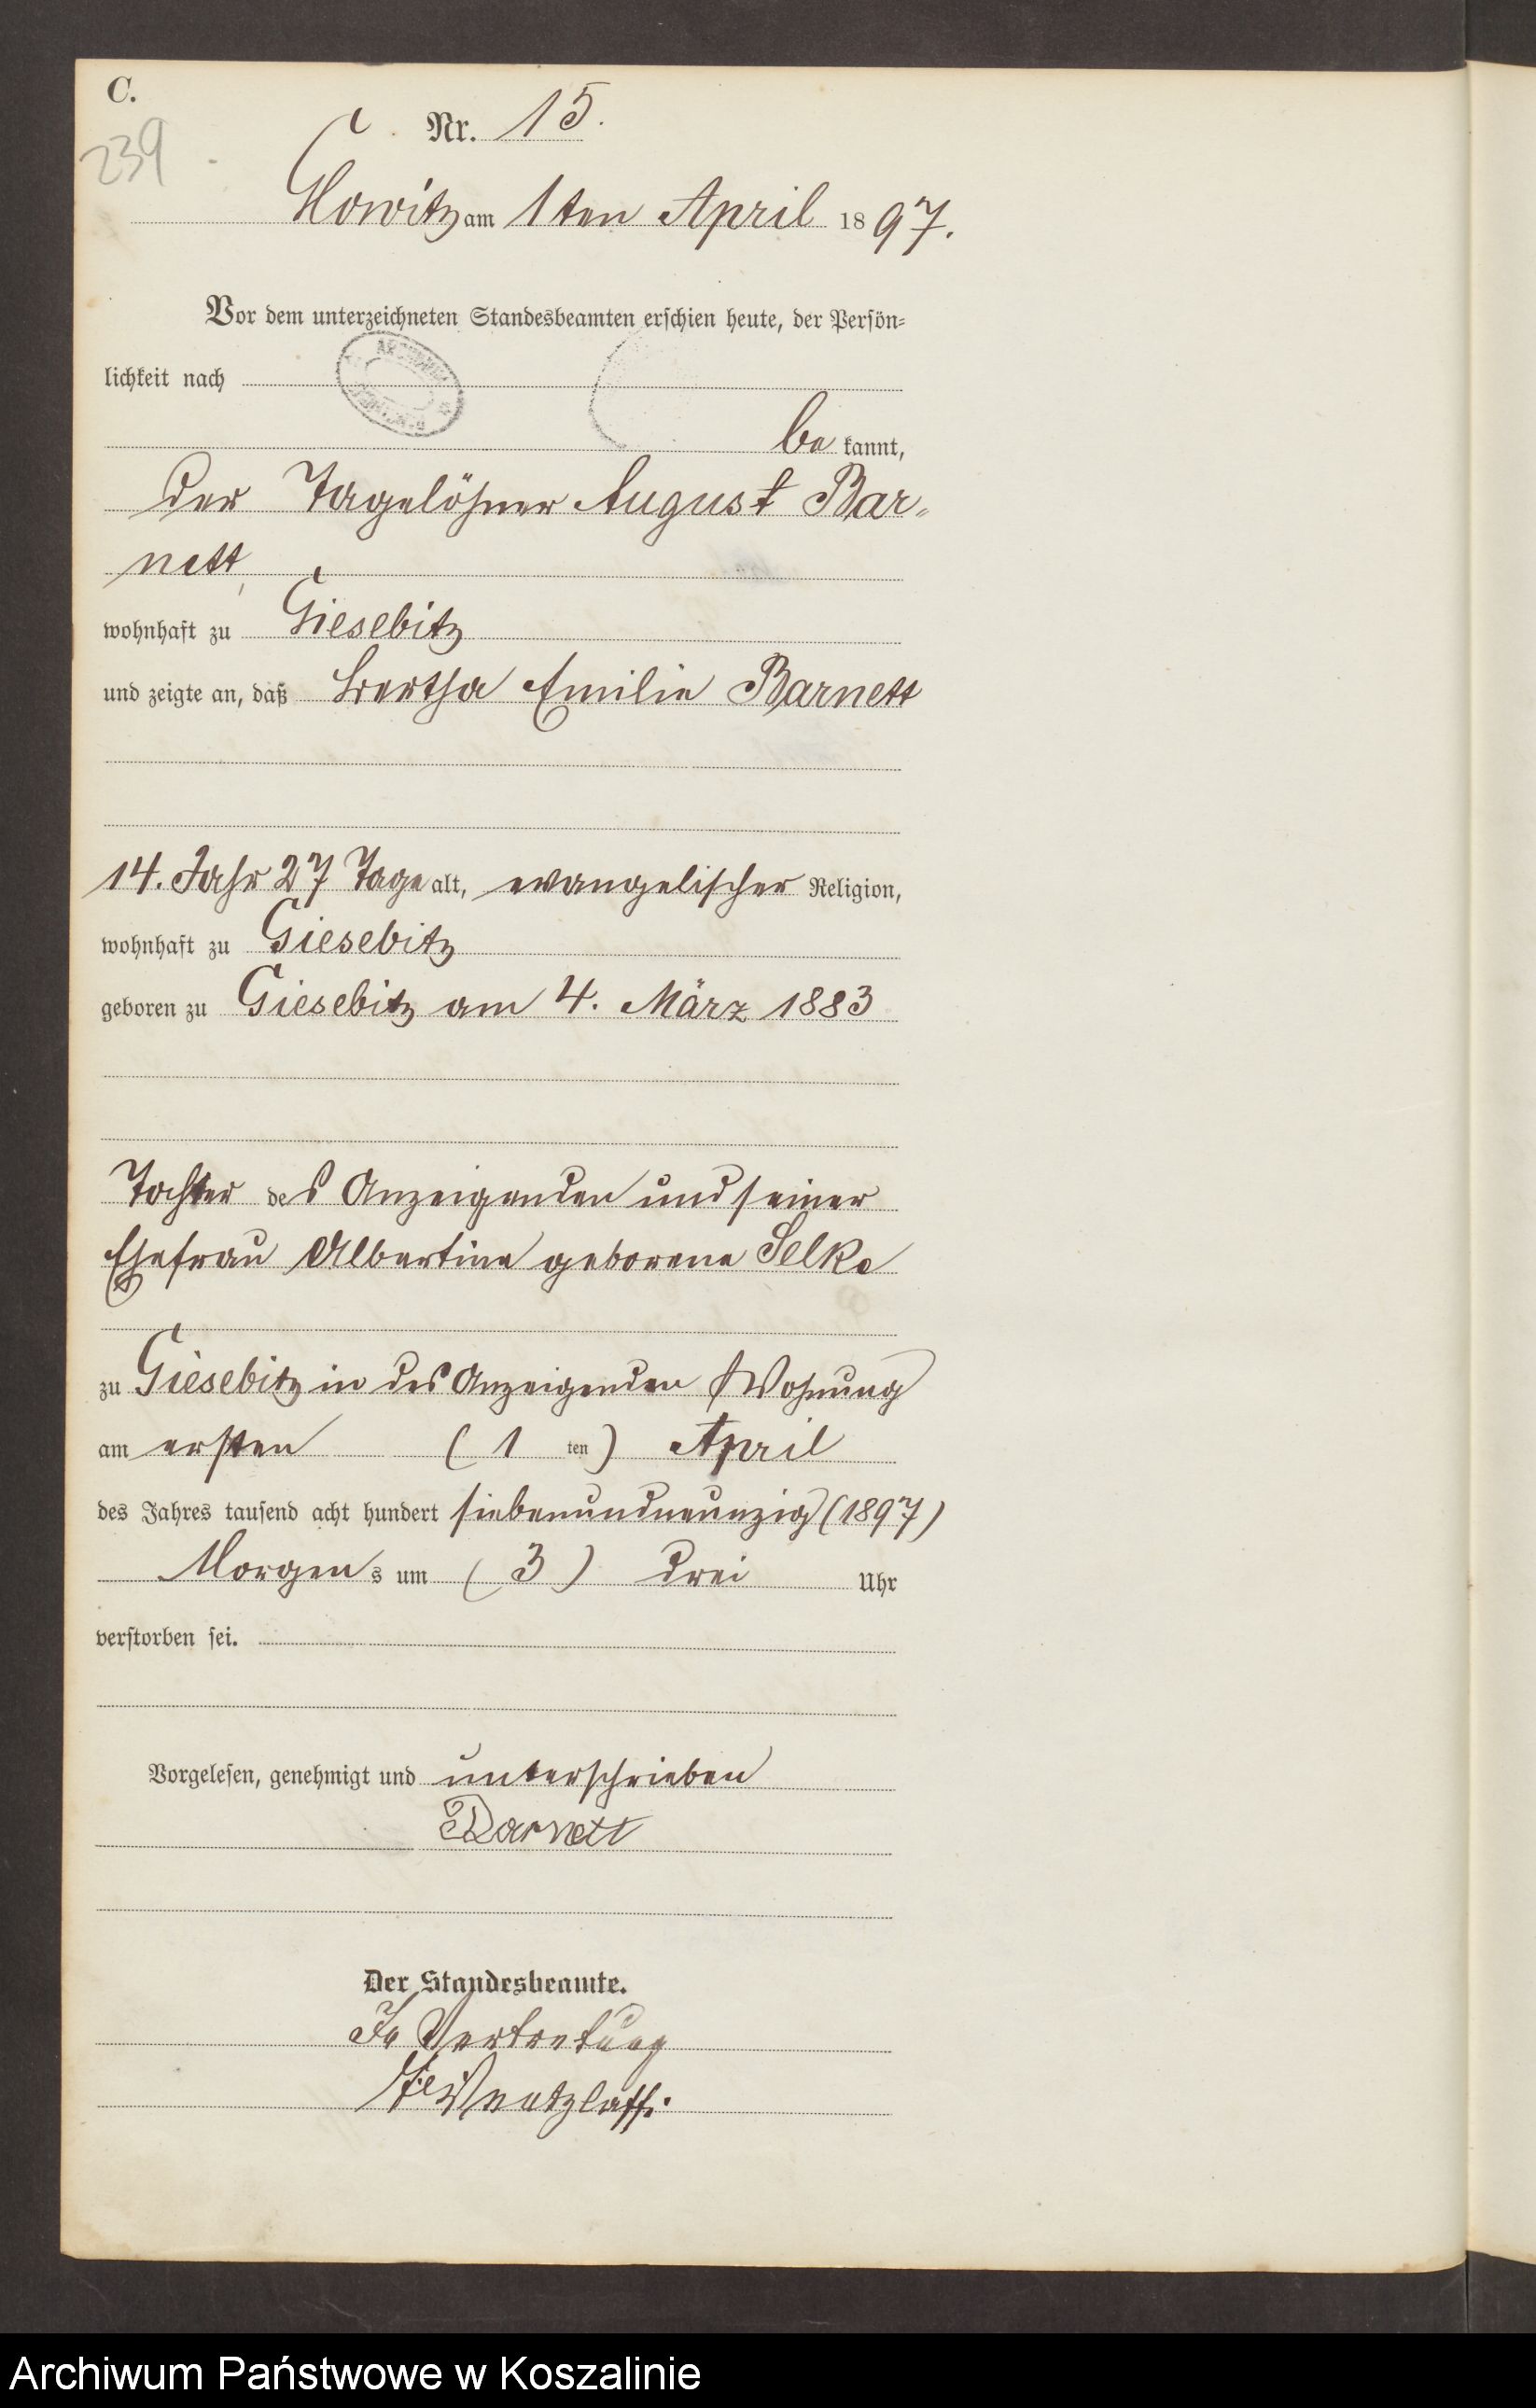 C.
239
Nr. 15.
Glowitz am 1ten April 1897.
Vor dem unterzeichneten Standesbeamten erschien heute, der Persön=
lichkeit nach
be kannt,
der Tagelöhner August Bar=
nett,
wohnhaft zu Giesebitz
und zeigte an, daß Bertha Emilie Barnett
14. Jahr 27 Tage alt, evangelischer Religion,
wohnhaft zu Giesebitz
geboren zu Giesebitz am 4. März 1883
Tochter des Anzeigenden und seiner
Ehefrau Albertine geborene Selke
zu Giesebitz in des Anzeigenden Wohnung
am ersten ( 1 ten ) April
des Jahres tausend acht hundert siebenundneunzig (1897)
Morgens um ( 3 ) drei Uhr
verstorben sei.
Vorgelesen, genehmigt und unterschrieben
Barnett
Der Standesbeamte.
In Vertretung
Archiwum Państwowe w Koszalinie